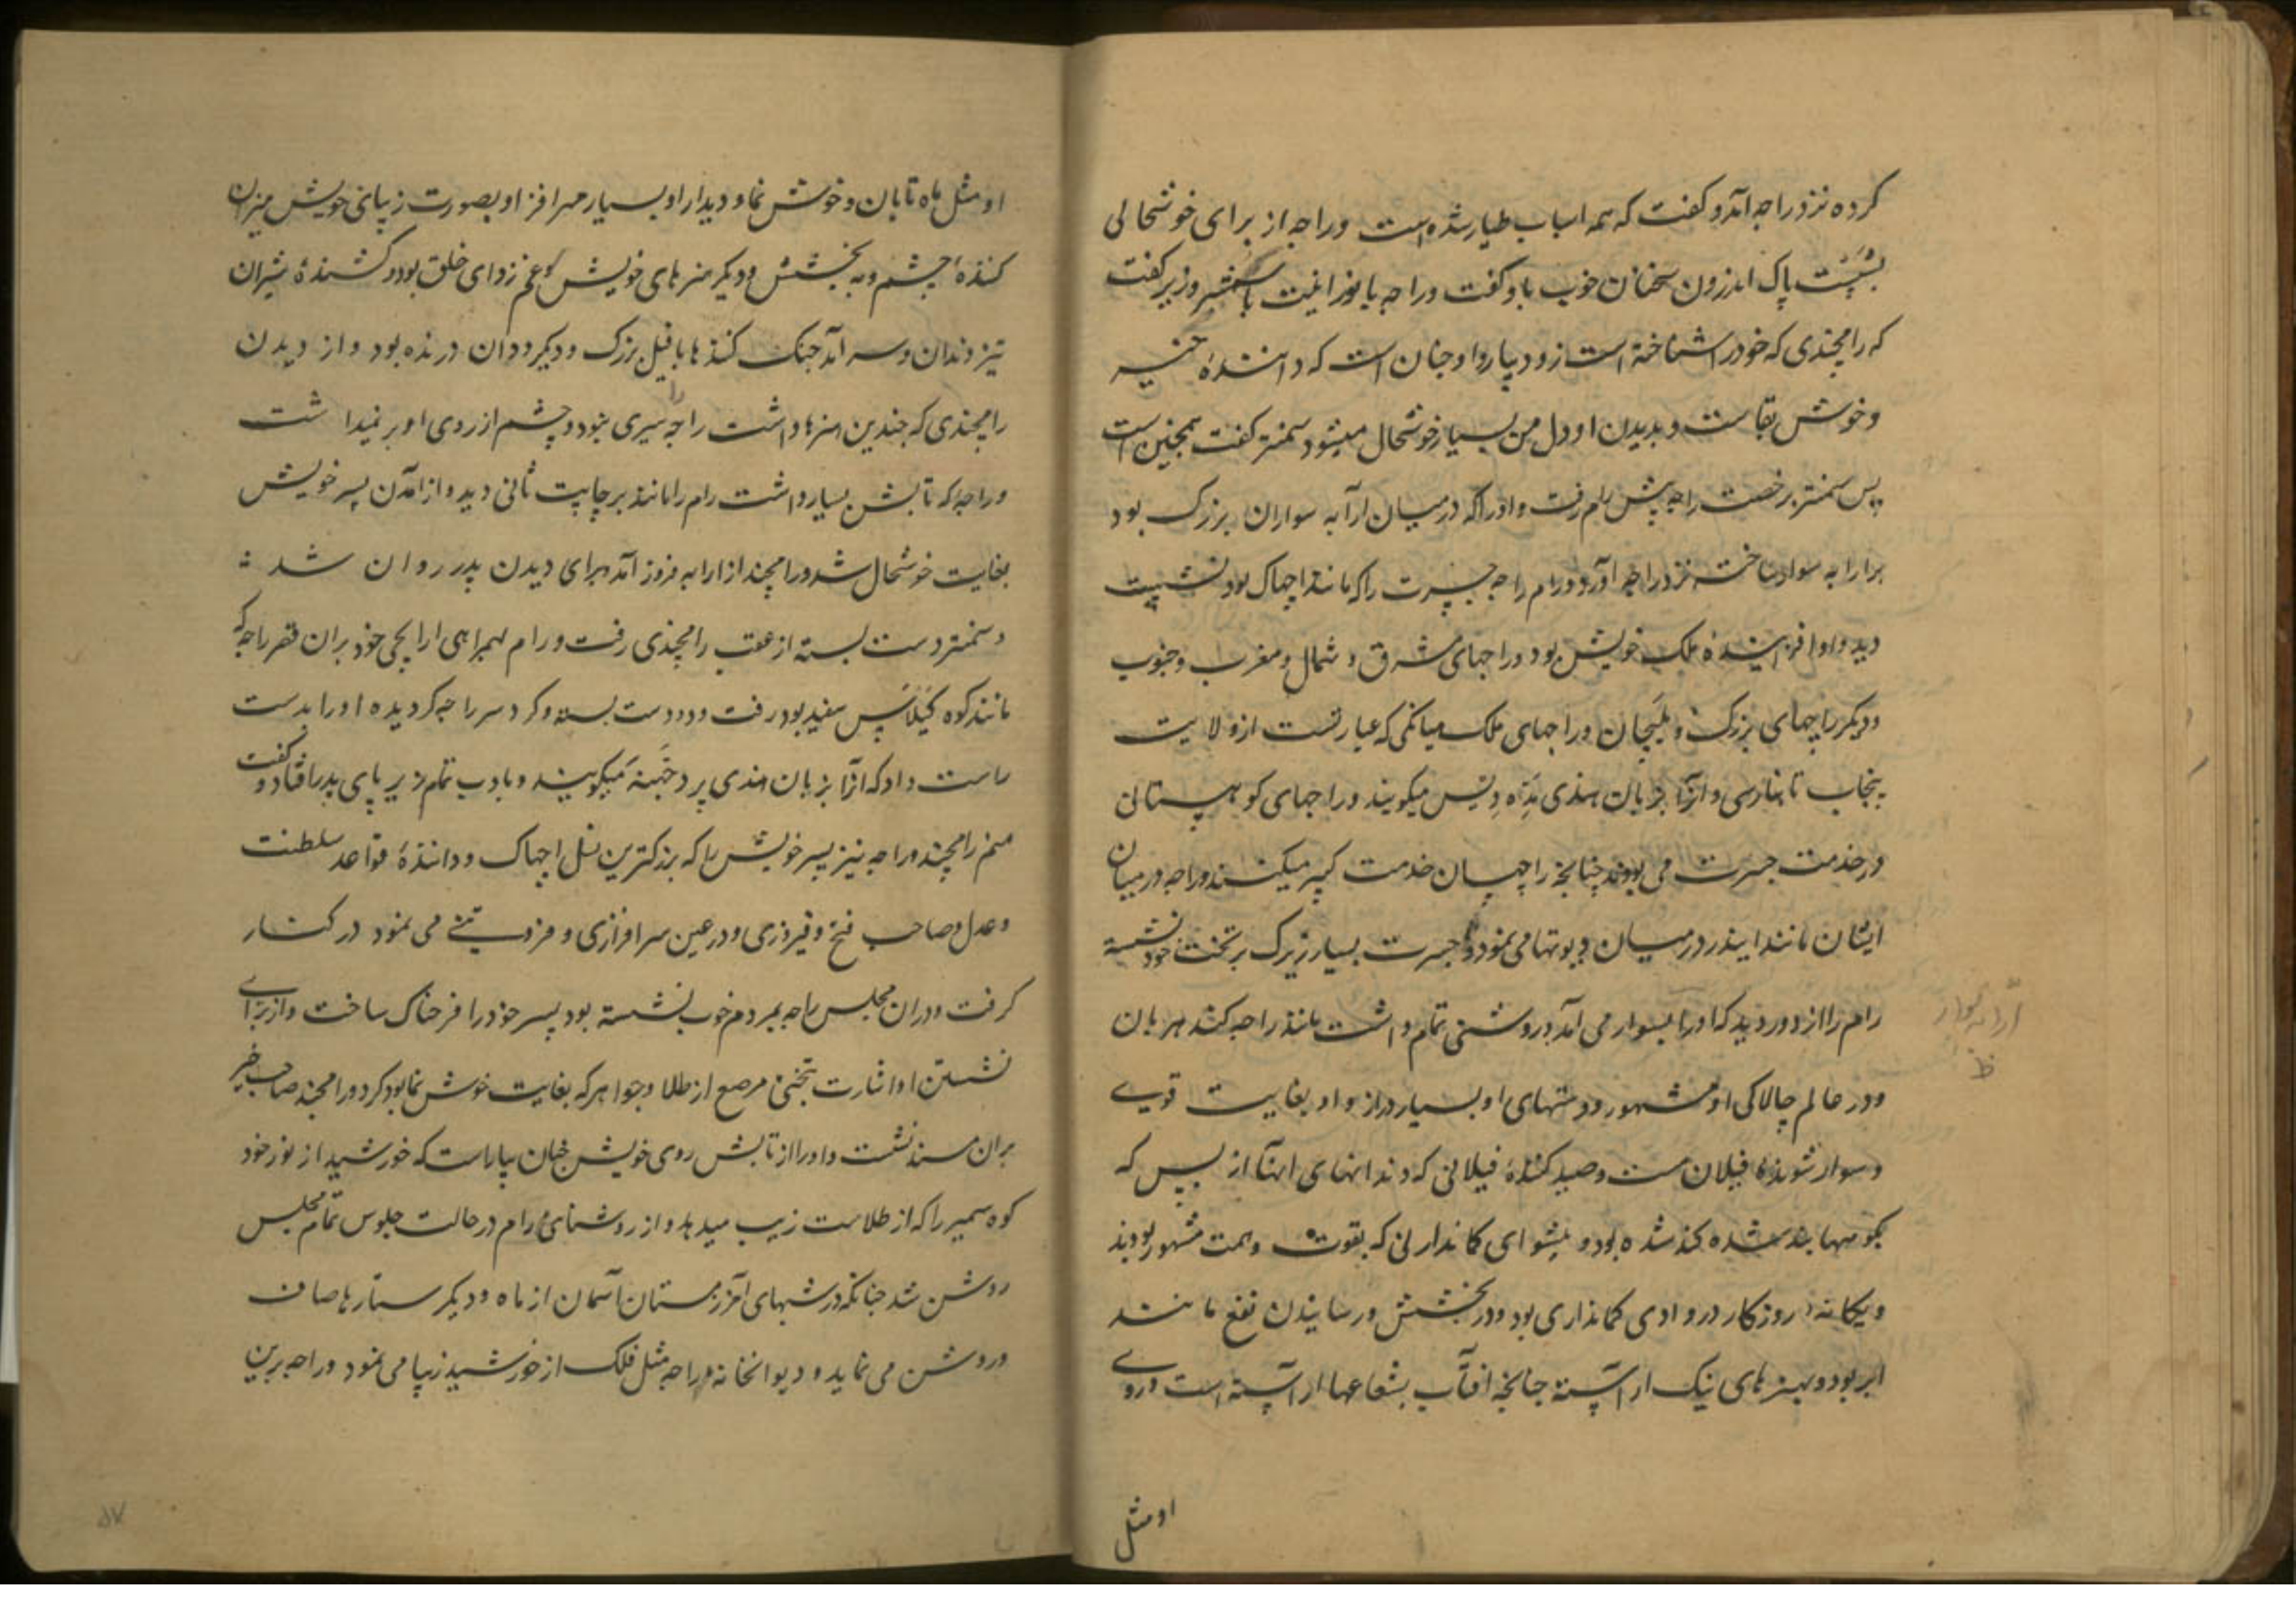 کرده نزد راجه آمد و گفت که همه اسباب طیار شده است و راجه از برای خوشحالی
بشیشت پاک اندرون سخنان خوب باو گفت و راجه با نورانیت با سمنتر وزیر گفت
که رامچندی که خود را شناخته است زود بیار و او چنان است که دانندهٔ خیر
و خوش بقاست و بدیدن او دل من بسیار خوشحال میشود سمنتر گفت همچنین است
پس سمنتر برخصت راجه پیش رام رفت و او را که در میان ارابه سواران بزرگ بود
بر ارابه سوار ساخته نزد راجه آورد و رام راجه جسرت را که مانند اچهاک بود نشسته
دید و او افزاینده ملک خویش بود و راجهای مشرق و شمال و مغرب و جنوب
و دیگر راجهای بزرگ و ملیچان و راجهای ملک میانگی که عبارتست از ولایت
پنجاب تا بنارسی و آنرا بزبان هندی مده دیس میگویند و راجهای کوهستانی
در خدمت جسرت می بودند چنانچه راجهسان خدمت کبیر میکنند و راجه در میان
ایشان مانند ایندر در میان دیوتها می نمود و جسرت بسیار زیرک بر تخت خود نشسته
رام را از دور دید که او را بسوار می آمد و روشنی تمام داشت مانند راجه کندهربان
و در عالم چالاکی او مشهور و دستهای او بسیار دراز و او بغایت قوی
و سوار شوندهٔ فیلان مست و صید کنندهٔ فیلانی که دندانهای آنها از بس که
بکوهها بند شده کند شده بود و پیشوای کماندارانی که بقوت و همت مشهور بودند
و یگانه روزگار در وادی کمانداری بود و در بخشش و رسانیدن نفع مانند
ابر بود و بهنرهای نیک آراسته چنانچه آفتاب بشعاعها آراسته است و روی
ارابه سوار
ظ
او مثل
او مثل ماه تابان و خوش نما و دیدار او بسیار مهرافزا و بصورت زیبای خویش میزان
کنندهٔ چشم و به بخشش و دیگر هنرهای خویش غم زدای خلق بود و کشندهٔ شیران
تیز دندان و سرآمد جنگ کنندها با فیل بزرگ و دیگر ددان درنده بود و از دیدن
رامچندی که چندین هنرها داشت راجه را سیری نبود و چشم از روی او بر نمیداشت
و راجه که تابش بسیار داشت رام را مانند برجاپت ثانی دید و از آمدن پسر خویش
بغایت خوشحال شد و رامچند از ارابه فرود آمد برای دیدن پدر روان شد
و سمنتر دست بسته از عقب رامچندی رفت و رام بهمراهی ارابچی خود بران قصر راجه که
مانند کوه کیلاس سفید بود رفت و دو دست بسته و گرد سر راجه گردیده او را بدست
راست داد که آنرا بزبان هندی پردچهنه میگویند و بادب تمام زیر پای پدر افتاد و گفت
منم رامچند و راجه نیز پسر خویش را که بزرگترین نسل اچهاک و دانندهٔ قواعد سلطنت
و عدل و صاحب فتح و فیروزی و در عین سرافرازی و فروتنی می نمود در کنار
گرفت و دران مجلس راجه بمردم خوب نشسته بود پسر خود را فرحناک ساخت و از برای
نشستن او اشارت بتختی مرصع از طلا و جواهر که بغایت خوش نما بود کرد و رامچند صاحب خیر
بران مسند نشست و او را از تابش روی خویش چنان بیاراست که خورشید از نور خود
کوه سمیر را که از طلاست زیب میدهد و از روشنای رام در حالت جلوس تمام مجلس
روشن شد چنانکه در شبهای آخر زمستان آسمان از ماه و دیگر ستارها صاف
و روشن می نماید و دیوانخانه راجه مثل فلک از خورشید زیبا می نمود و راجه برین
۵۷